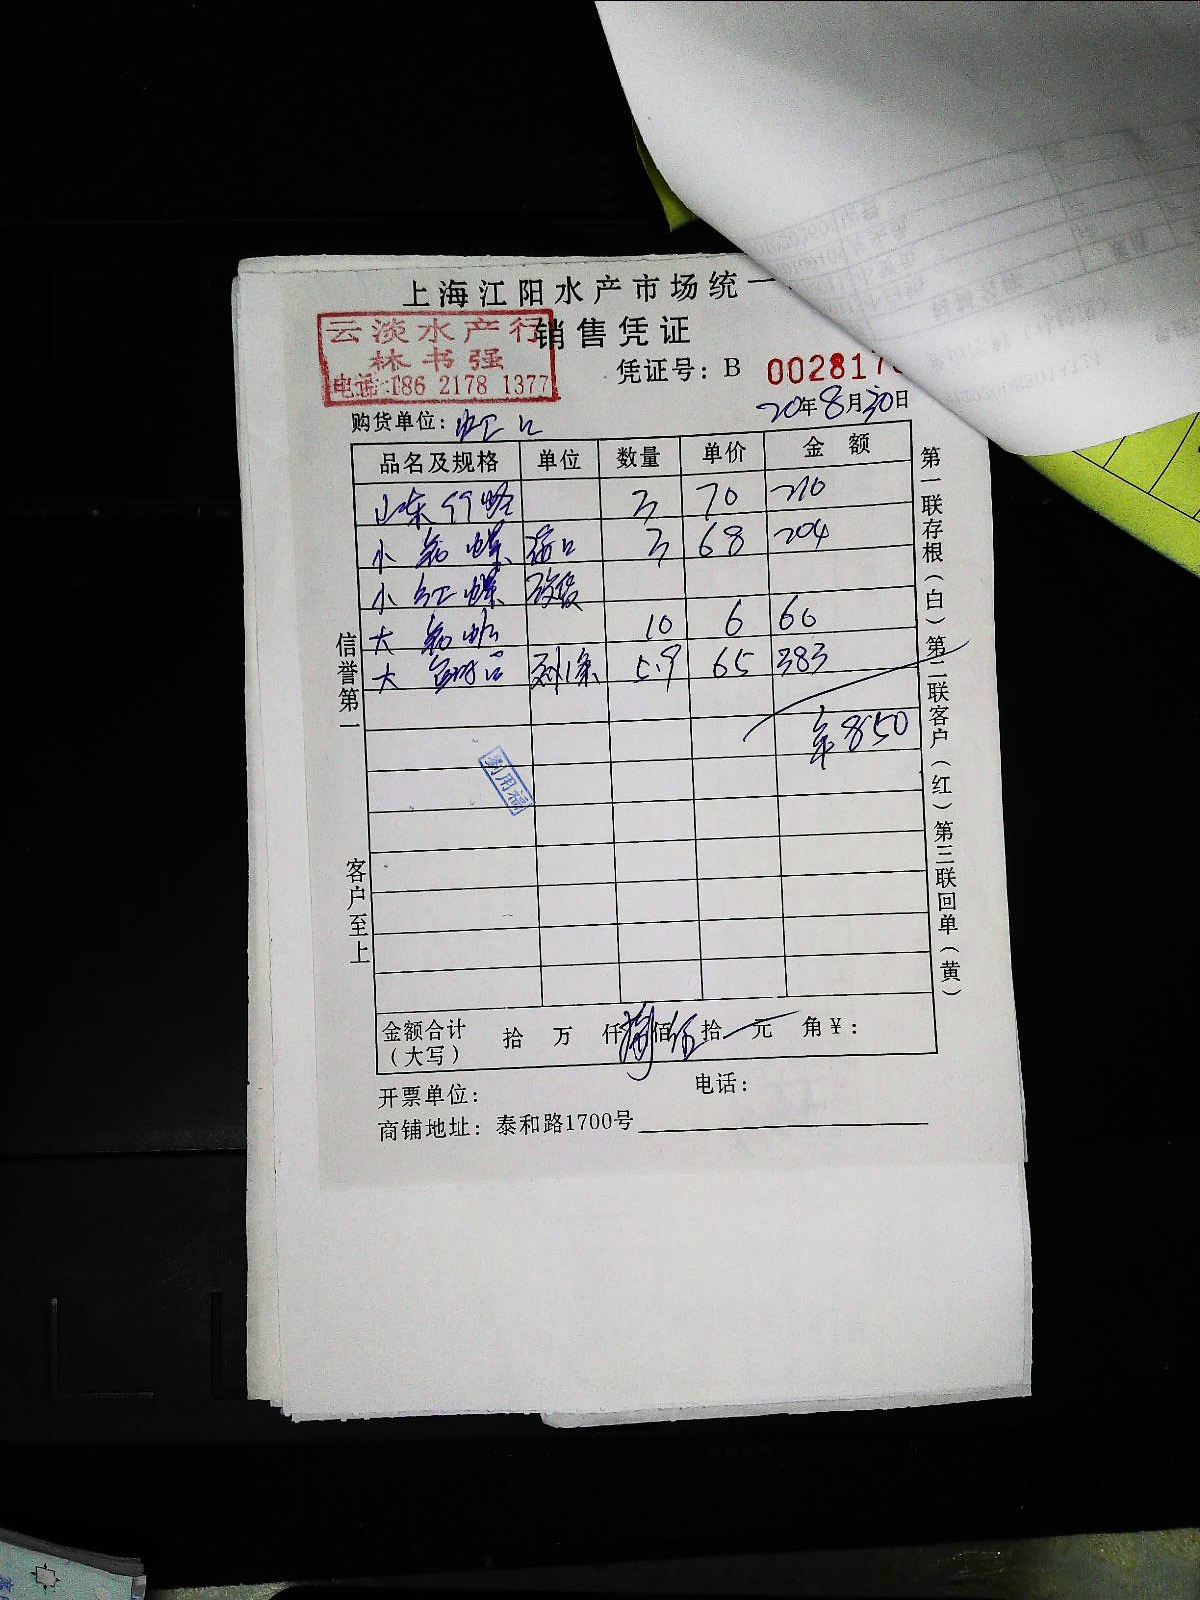 上海江阳水产市场统一
销售凭证
云淡水产行
林书强
电话:186 2178 1377
凭证号：B 0028170
20年8月30日
购货单位：虹口
品名及规格 单位 数量 单价 金额
山东竹蛏 3 70 210
小 螺 3 68 204
小红螺
大 10 6 60
大 5.9 65 383
¥850
利用福
金额合计（大写） 拾 万 仟 捌 佰 伍 拾 元 角 ¥：
开票单位：
电话：
商铺地址：泰和路1700号
信誉第一
客户至上
第一联存根（白）第二联客户（红）第三联回单（黄）